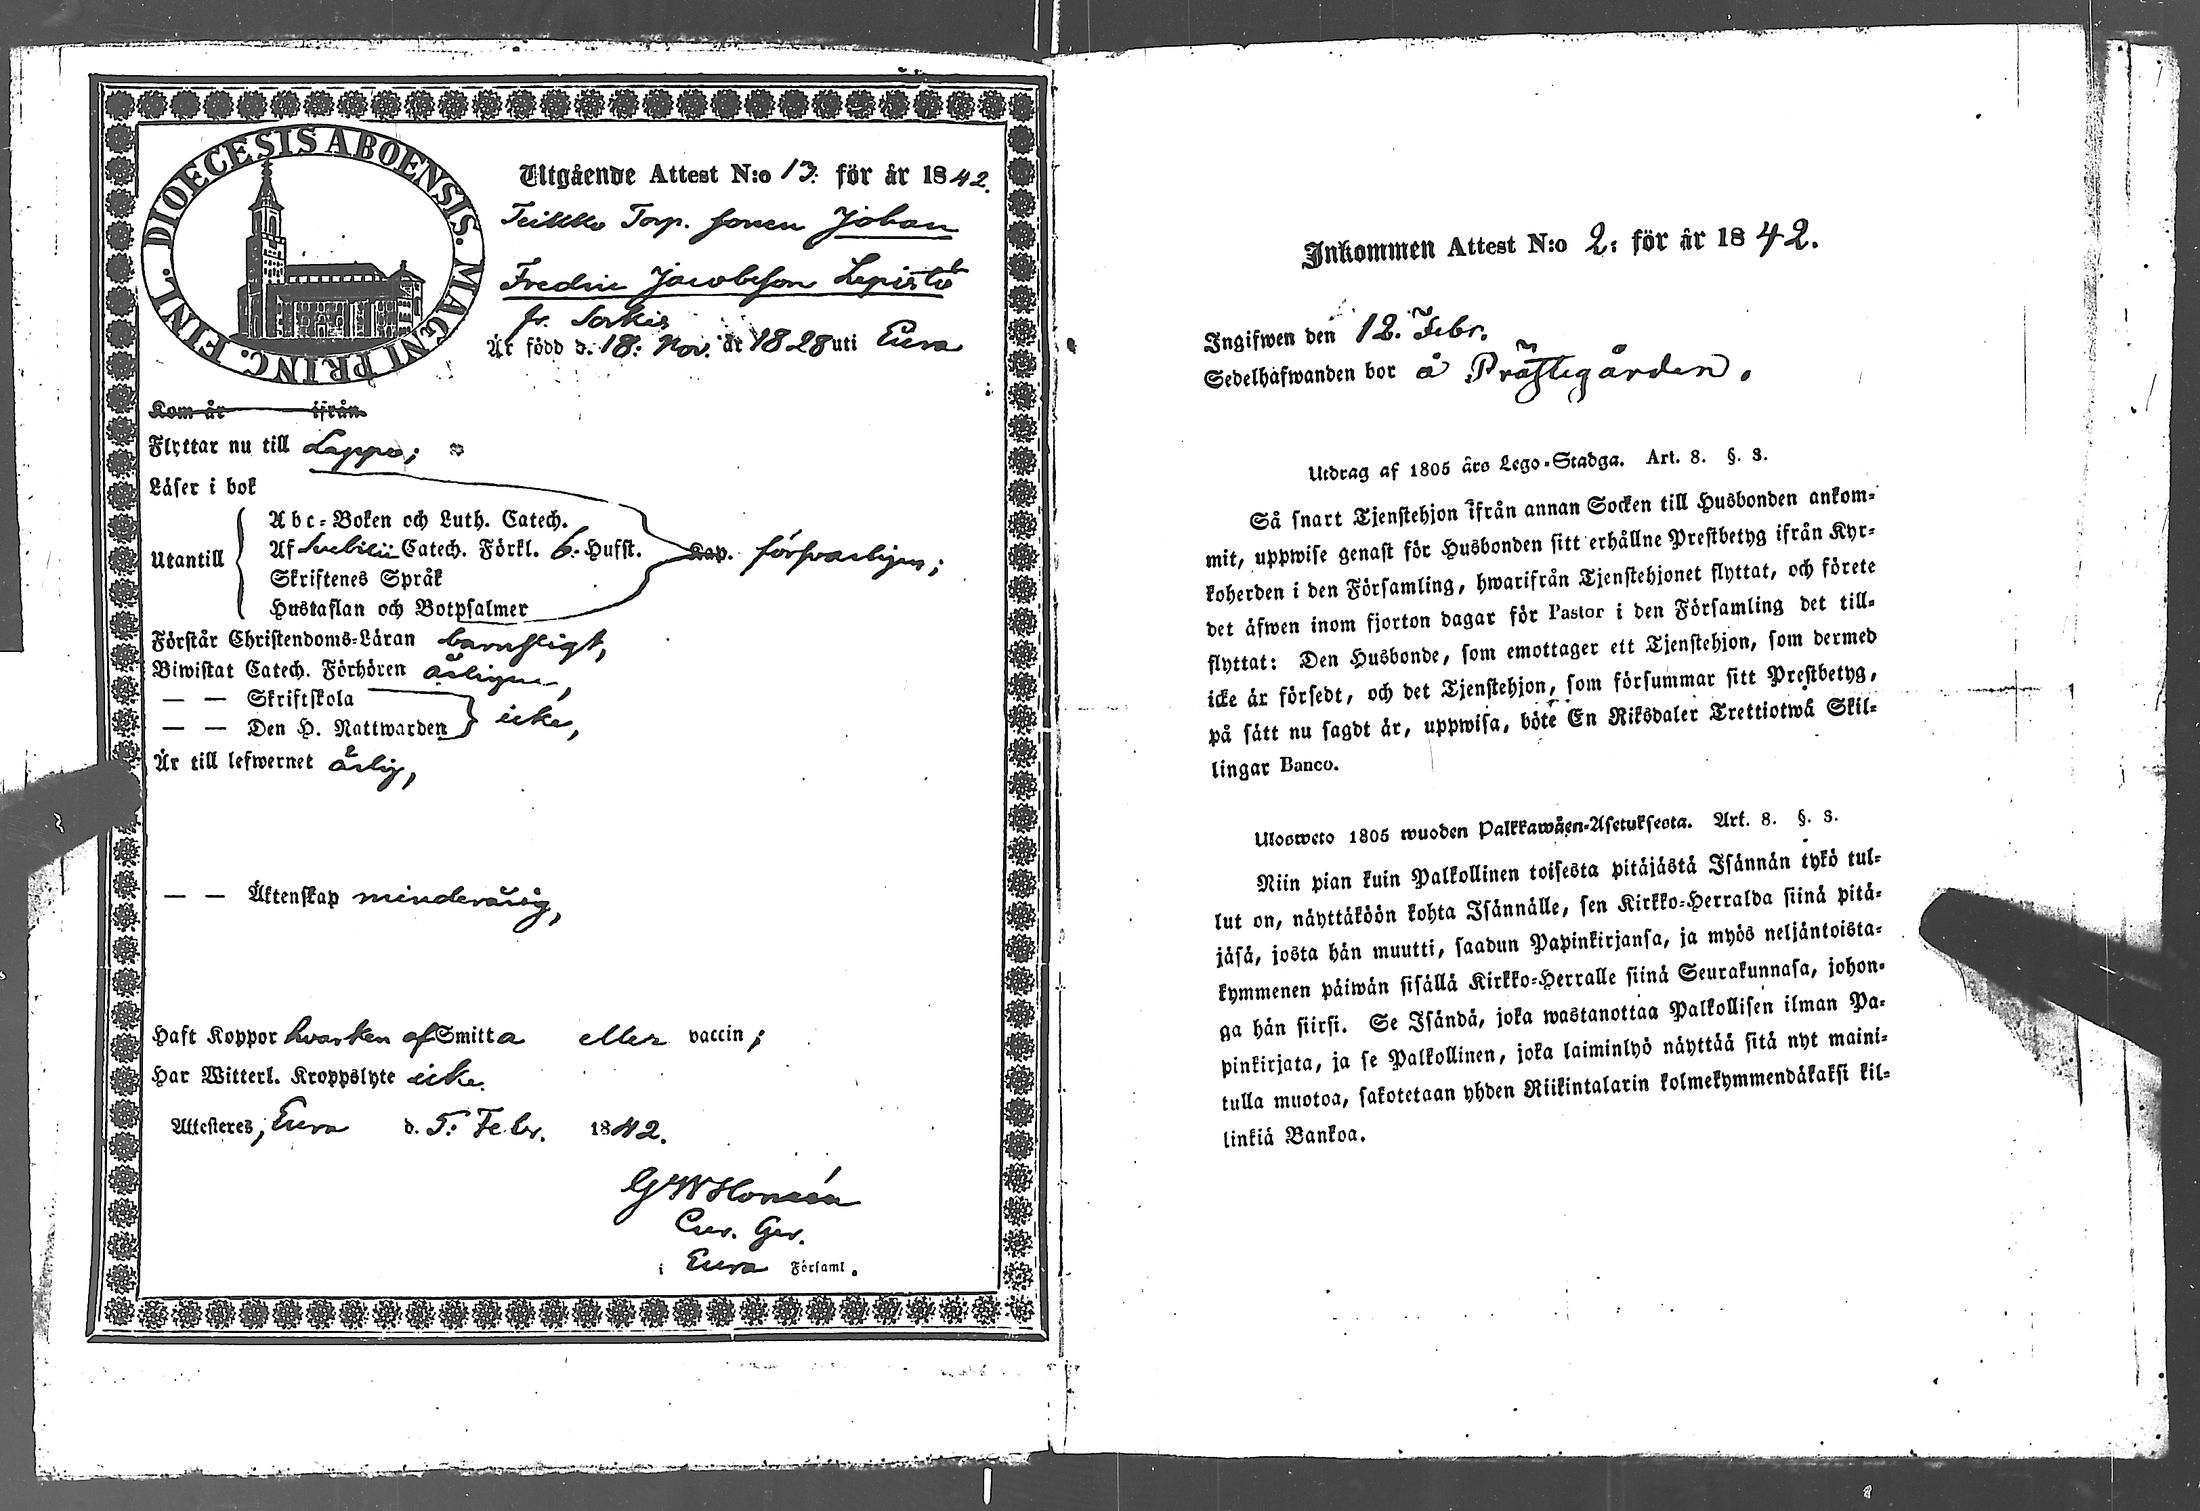 DIOECESIS ABOENSIS. MAGNI PRINC. FINL.
Utgående Attest N:o 13: för år 1842.
Torp. sonen Johan
Fredric Jacobsson Lepistö
fr. Sorkis
Är född d. 18: Nov. år 1828 uti Eura
Kom år ifrån
Flyttar nu till Lappo;
Läser i bok
Utantill
Abc-Boken och Luth. Catech.
Af Svebilii Catech. Förkl. 6. Hufst.
Skriftenes Språk
Hustaflan och Botpsalmer
Kap. försvarligen;
Förstår Christendoms-Läran barnsligt,
Biwistat Catech. Förhören årligen,
— — Skriftskola
— — Den H. Nattwarden
icke,
Är till lefwernet ärlig,
— — Äktenskap minderårig,
Haft Koppor hvarken af Smitta eller vaccin;
Har Witterl. Kroppslyte icke.
Attesteres, Eura d. 5: Febr. 1842.
Cur. Ger.
i Eura Församl.
Inkommen Attest N:o 2: för år 1842.
Ingifwen den 12. Febr.
Sedelhafwanden bor å Prästegården.
Utdrag af 1805 års Lego-Stadga. Art. 8. §. 3.
Så snart Tjenstehjon ifrån annan Socken till Husbonden ankom-
mit, uppwise genast för Husbonden sitt erhållne Prestbetyg ifrån Kyr-
koherden i den Församling, hwarifrån Tjenstehjonet flyttat, och förete
det äfwen inom fjorton dagar för Pastor i den Församling det till-
flyttat: Den Husbonde, som emottager ett Tjenstehjon, som dermed
icke är försedt, och det Tjenstehjon, som försummar sitt Prestbetyg,
på sätt nu sagdt är, uppwisa, böte En Riksdaler Trettiotwå Skil-
lingar Banco.
Ulosweto 1805 wuoden Palkkawäen-Asetuksesta. Art. 8. §. 3.
Niin pian kuin Palkollinen toisesta pitäjästä Isännän tykö tul-
lut on, näyttäköön kohta Isännälle, sen Kirkko-Herralda siinä pitä-
jäsä, josta hän muutti, saadun Papinkirjansa, ja myös neljäntoista-
kymmenen päiwän sisällä Kirkko-Herralle siinä Seurakunnasa, johon-
ga hän siirsi. Se Isändä, joka wastanottaa Palkollisen ilman Pa-
pinkirjata, ja se Palkollinen, joka laiminlyö näyttää sitä nyt maini-
tulla muotoa, sakotetaan yhden Riikintalarin kolmekymmendäkaksi kil-
linkiä Bankoa.